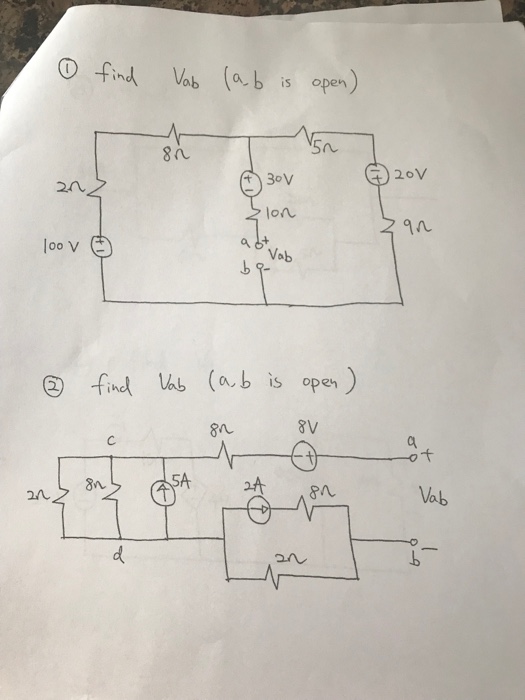 ① find Vab (a,b is open)
8Ω
5Ω
2Ω
30V
20V
10Ω
9Ω
100 V
a + Vab
b -
② find Vab (a,b is open)
c
8Ω
8V
a
+
2Ω
8Ω
5A
2A
8Ω
Vab
d
2Ω
b -